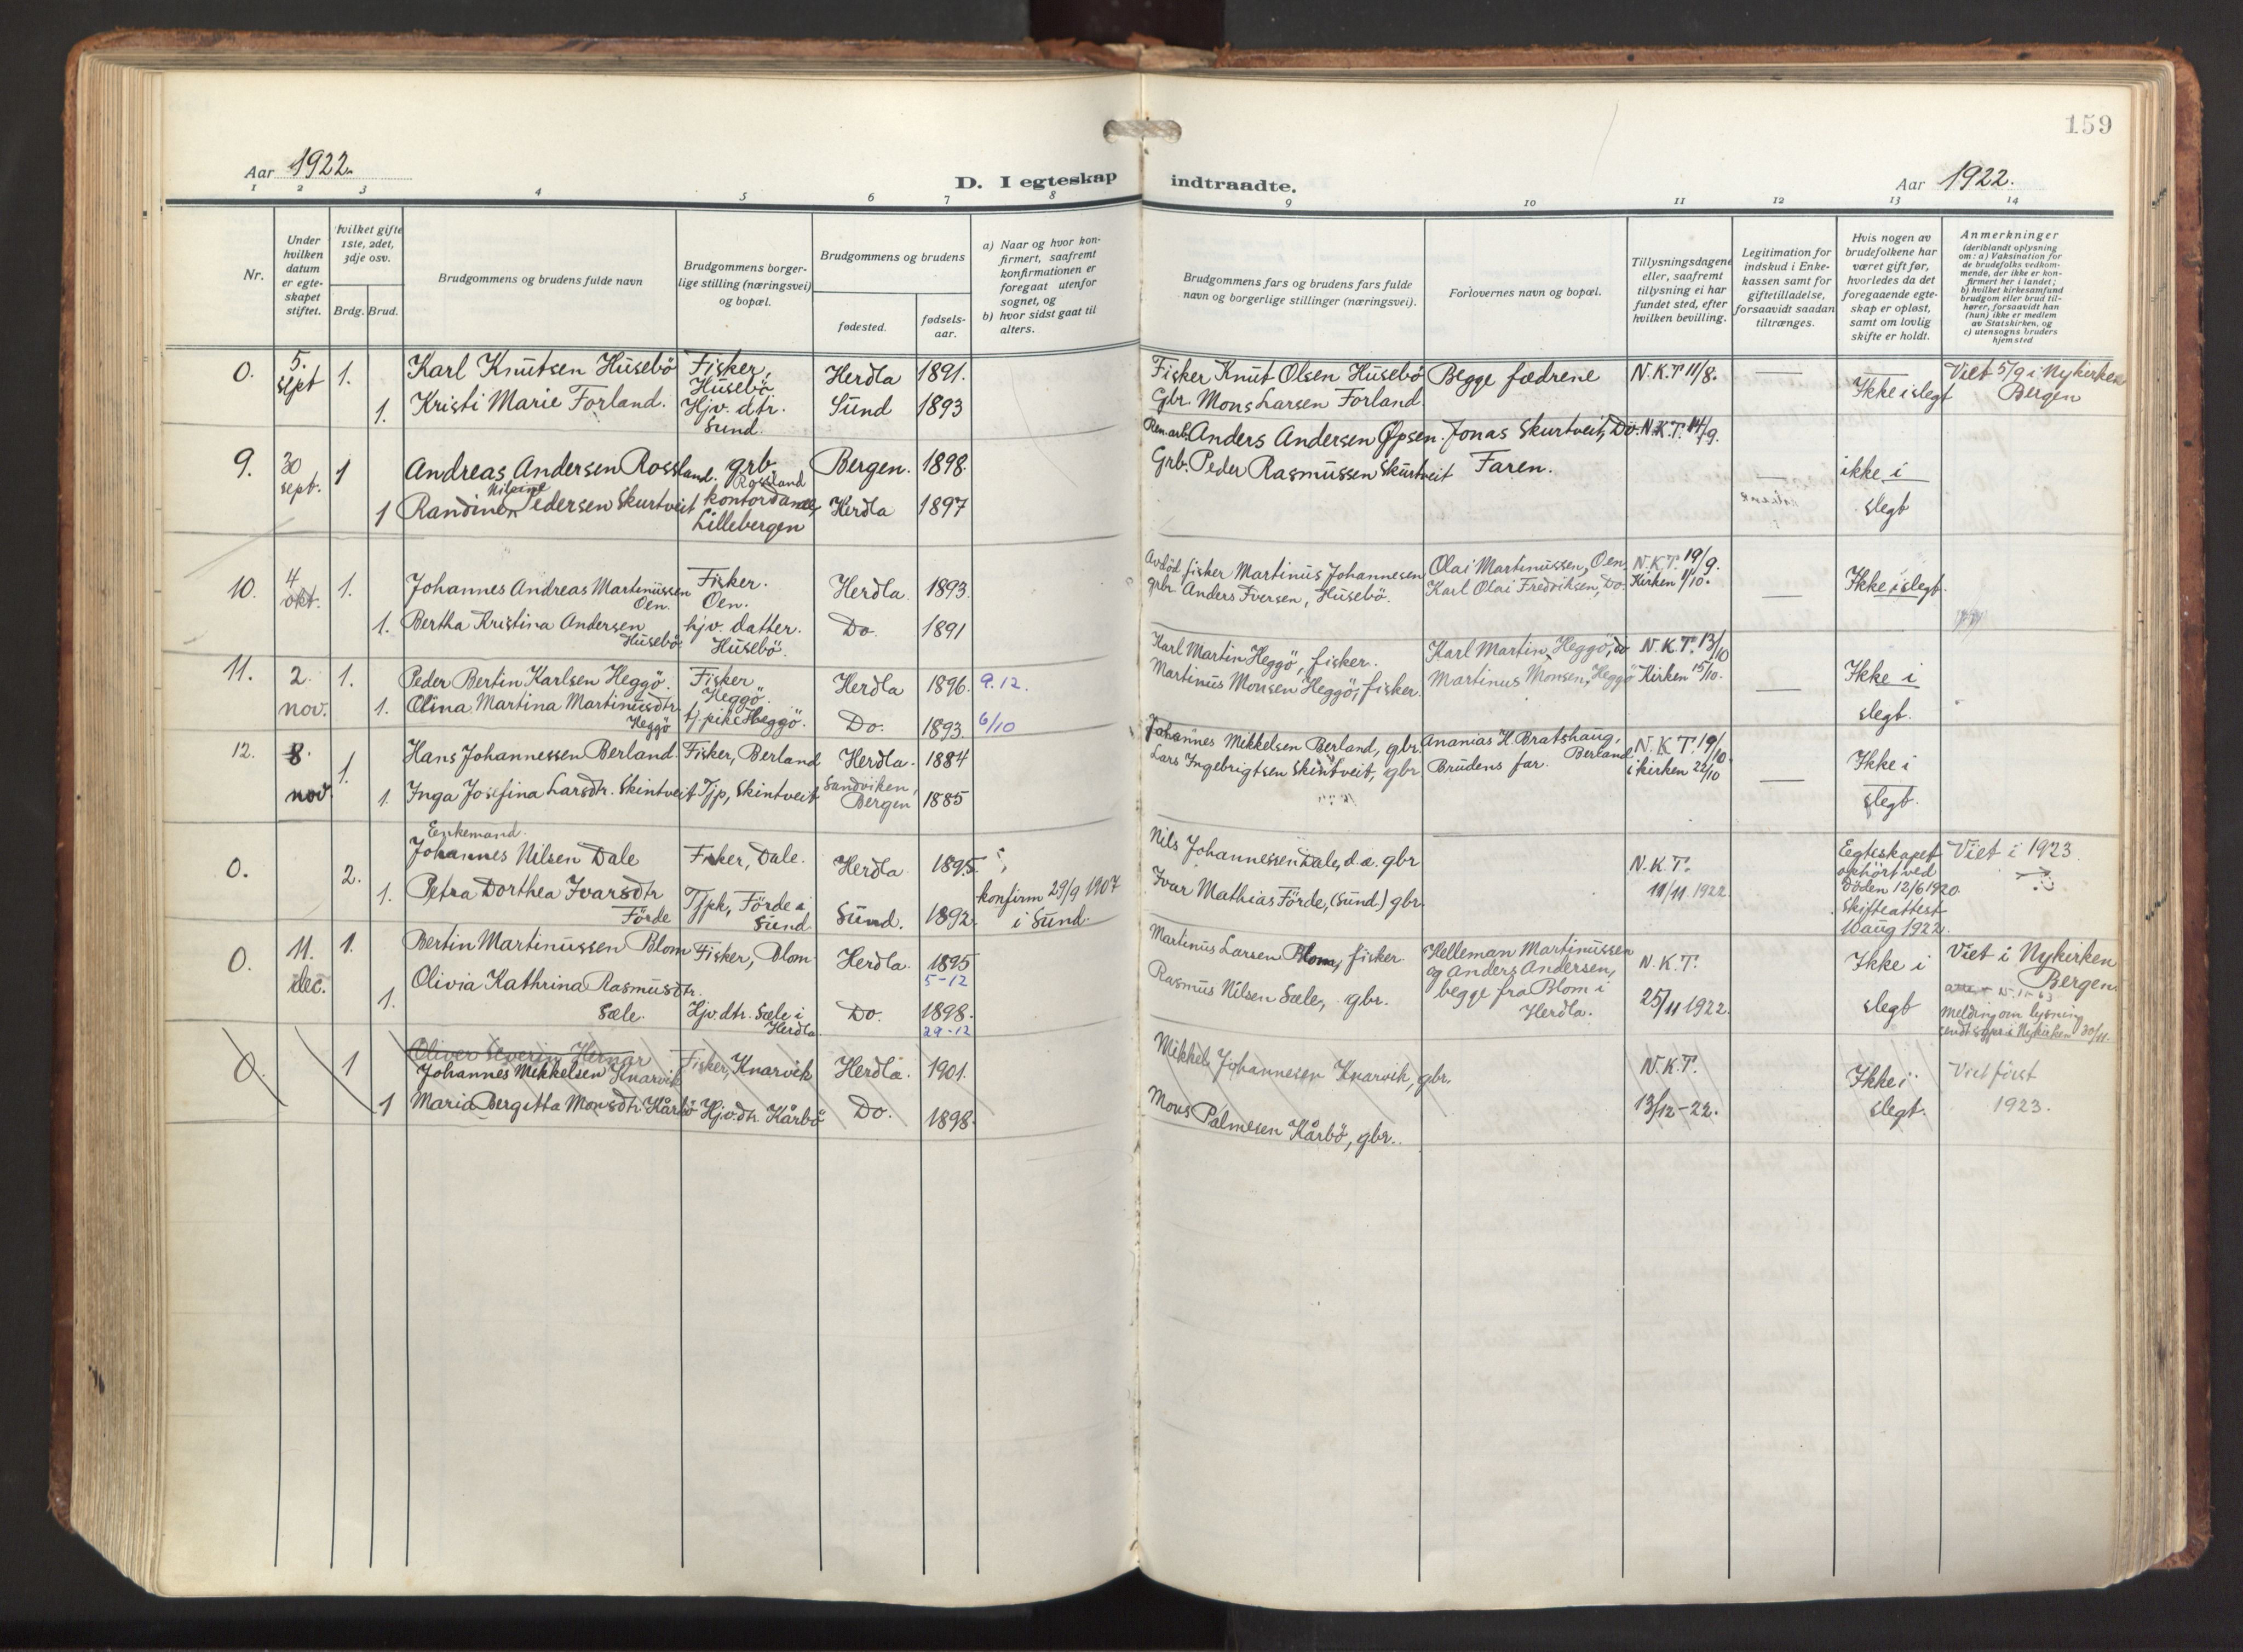 159
Aar 1922.
D. I egteskap indtraadte.
Aar 1922.
1 2 3 4 5 6 7 8 9 10 11 12 13 14
Nr.
Under hvilken datum er egte-skapet stiftet.
Hvilket gifte 1ste, 2det, 3dje osv.
Brdg. Brud.
Brudgommens og brudens fulde navn
Brudgommens borger-lige stilling (næringsvei) og bopæl.
Brudgommens og brudens
fødested.
fødsels-aar.
a) Naar og hvor kon-firmert, saafremt konfirmationen er foregaat utenfor sognet, og
b) hvor sidst gaat til alters.
Brudgommens fars og brudens fars fulde navn og borgerlige stillinger (næringsvei).
Forlovernes navn og bopæl.
Tillysningsdagene eller, saafremt tillysning ei har fundet sted, efter hvilken bevilling.
Legitimation for indskud i Enke-kassen samt for giftetilladelse, forsaavidt saadan tiltrænges.
Hvis nogen av brudefolkene har været gift før, hvorledes da det foregaaende egte-skap er opløst, samt om lovlig skifte er holdt.
Anmerkninger (deriblandt oplysning om: a) Vaksination for de brudefolks vedkom-mende, der ikke er kon-firmert her i landet; b) hvilket kirkesamfund brudgom eller brud til-hører, forsaavidt han (hun) ikke er medlem av Statskirken, og c) utensogns bruders hjemsted
0. 5. sept 1. Karl Knutsen Husebö Fisker, Husebö Herdla 1891.
1. Kristi Marie Forland. Hjv. dtr. Sund. Sund 1893
Fisker Knut Olsen Husebö Begge fædrene N.K.T. 11/8. — Ikke i slegt Viet 5/9 i Nykirken Bergen
Gbr. Mons Larsen Forland.
9. 30 sept. 1 Andreas Andersen Rossland. grb. Rossland Bergen. 1898.
1 Randine Pedersen Skurtveit kontordame, Lillebergen Herdla 1897
Anders Andersen Øpsen. Jonas Skurtveit, Do. N.K.T. 14/9.
Grb. Peder Rasmussen Skurtveit Faren. — ikke i slegt
10. 4 okt. 1. Johannes Andreas Martinussen Oen. Fisker. Oen. Herdla. 1893.
1. Bertha Kristina Andersen Husebö hjv. datter. Husebö. Do. 1891
Avdöd fisker Martinus Johannesen Olai Martinussen, Oen, N.K.T. 19/9.
grb. Anders Iversen, Husebö. Karl Olai Fredriksen, Do. Kirken 1/10. — Ikke i slegt.
11. 2. nov. 1. Peder Bertin Karlsen Heggö. Fisker Heggö. Herdla 1896. 9.12.
1. Olina Martina Martinusdtr. Heggö tj.pike Heggö. Do. 1893. 6/10
Karl Martin Heggö, fisker. Karl Martin Heggö, do N.K.T. 13/10
Martinus Monsen Heggö, fisker. Martinus Monsen, Heggö Kirken 15/10. — Ikke i slegt.
12. 8. nov. 1. Hans Johannessen Berland. Fisker, Berland Herdla. 1884
1. Inga Josefina Larsdtr. Skintveit Tjp, Skintveit Sandviken, Bergen 1885
Johannes Mikkelsen Berland, gbr. Ananias H. Bratshaug, Berland N.K.T. 19/10.
Lars Ingebrigtsen Skintveit, gbr Brudens far. i kirken 22/10 — Ikke i slegt.
0. 2. Enkemand. Johannes Nilsen Dale Fisker, Dale. Herdla 1895.
1. Petra Dorthea Ivarsdtr Förde Tjpk, Förde i Sund Sund. 1892. konfirm 29/9 1907 i Sund.
Nils Johannessen Dale, d.æ. gbr N.K.T. 11/11 1922.
Ivar Mathias Förde, (Sund.) gbr.
Egteskapet ophört ved Döden 12/6 1920. Skifteattest 10 aug 1922.
Viet i 1923.
0. 11. dec. 1. Bertin Martinussen Blom Fisker, Blom Herdla. 1895 5-12
1. Olivia Kathrina Rasmusdtr. Sæle. Hjv.dtr. Sæle i Herdla Do. 1898. 29-12
Martinus Larsen Blom, fisker. Helleman Martinussen og Anders Andersen, begge fra Blom i Herdla. N.K.T. 25/11 1922. Ikke i slegt
Rasmus Nilsen Sæle, gbr.
Viet i Nykirken Bergen.
Melding om lysning sendt sogpr i Nykirken 30/11.
0. 1 Oliver Severin Hernar
Johannes Mikkelsen Knarvik Fisker, Knarvik Herdla. 1901.
1 Maria Bergitta Monsdtr. Kårbö Hjv.dtr. Kårbö Do. 1898.
Mikkel Johannesen Knarvik, gbr. N.K.T. 13/12-22. Ikke i slegt. Viet først 1923.
Mons Palmesen Kårbö, gbr.